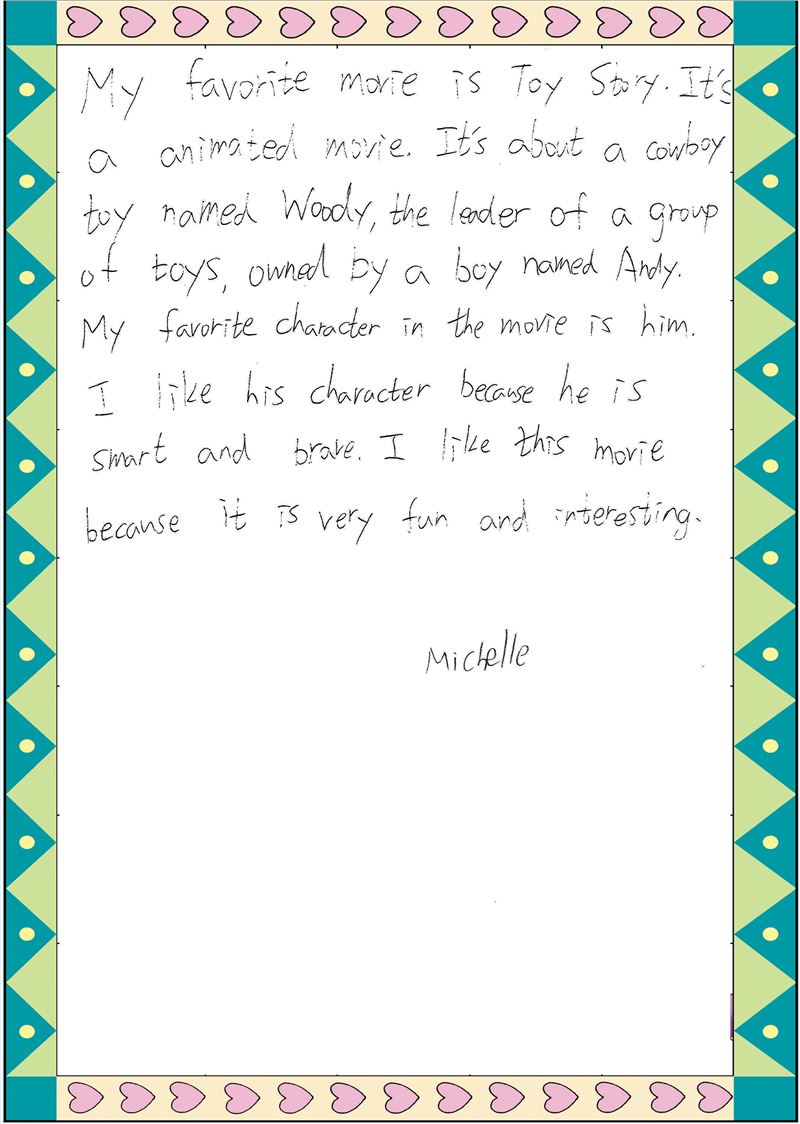 My favorite movie is Toy Story. It's
a animated movie. It's about a cowboy
toy named Woody, the leader of a group
of toys, owned by a boy named Andy.
My favorite character in the movie is him.
I like his character because he is
smart and brave. I like this movie
because it is very fun and interesting.
Michelle